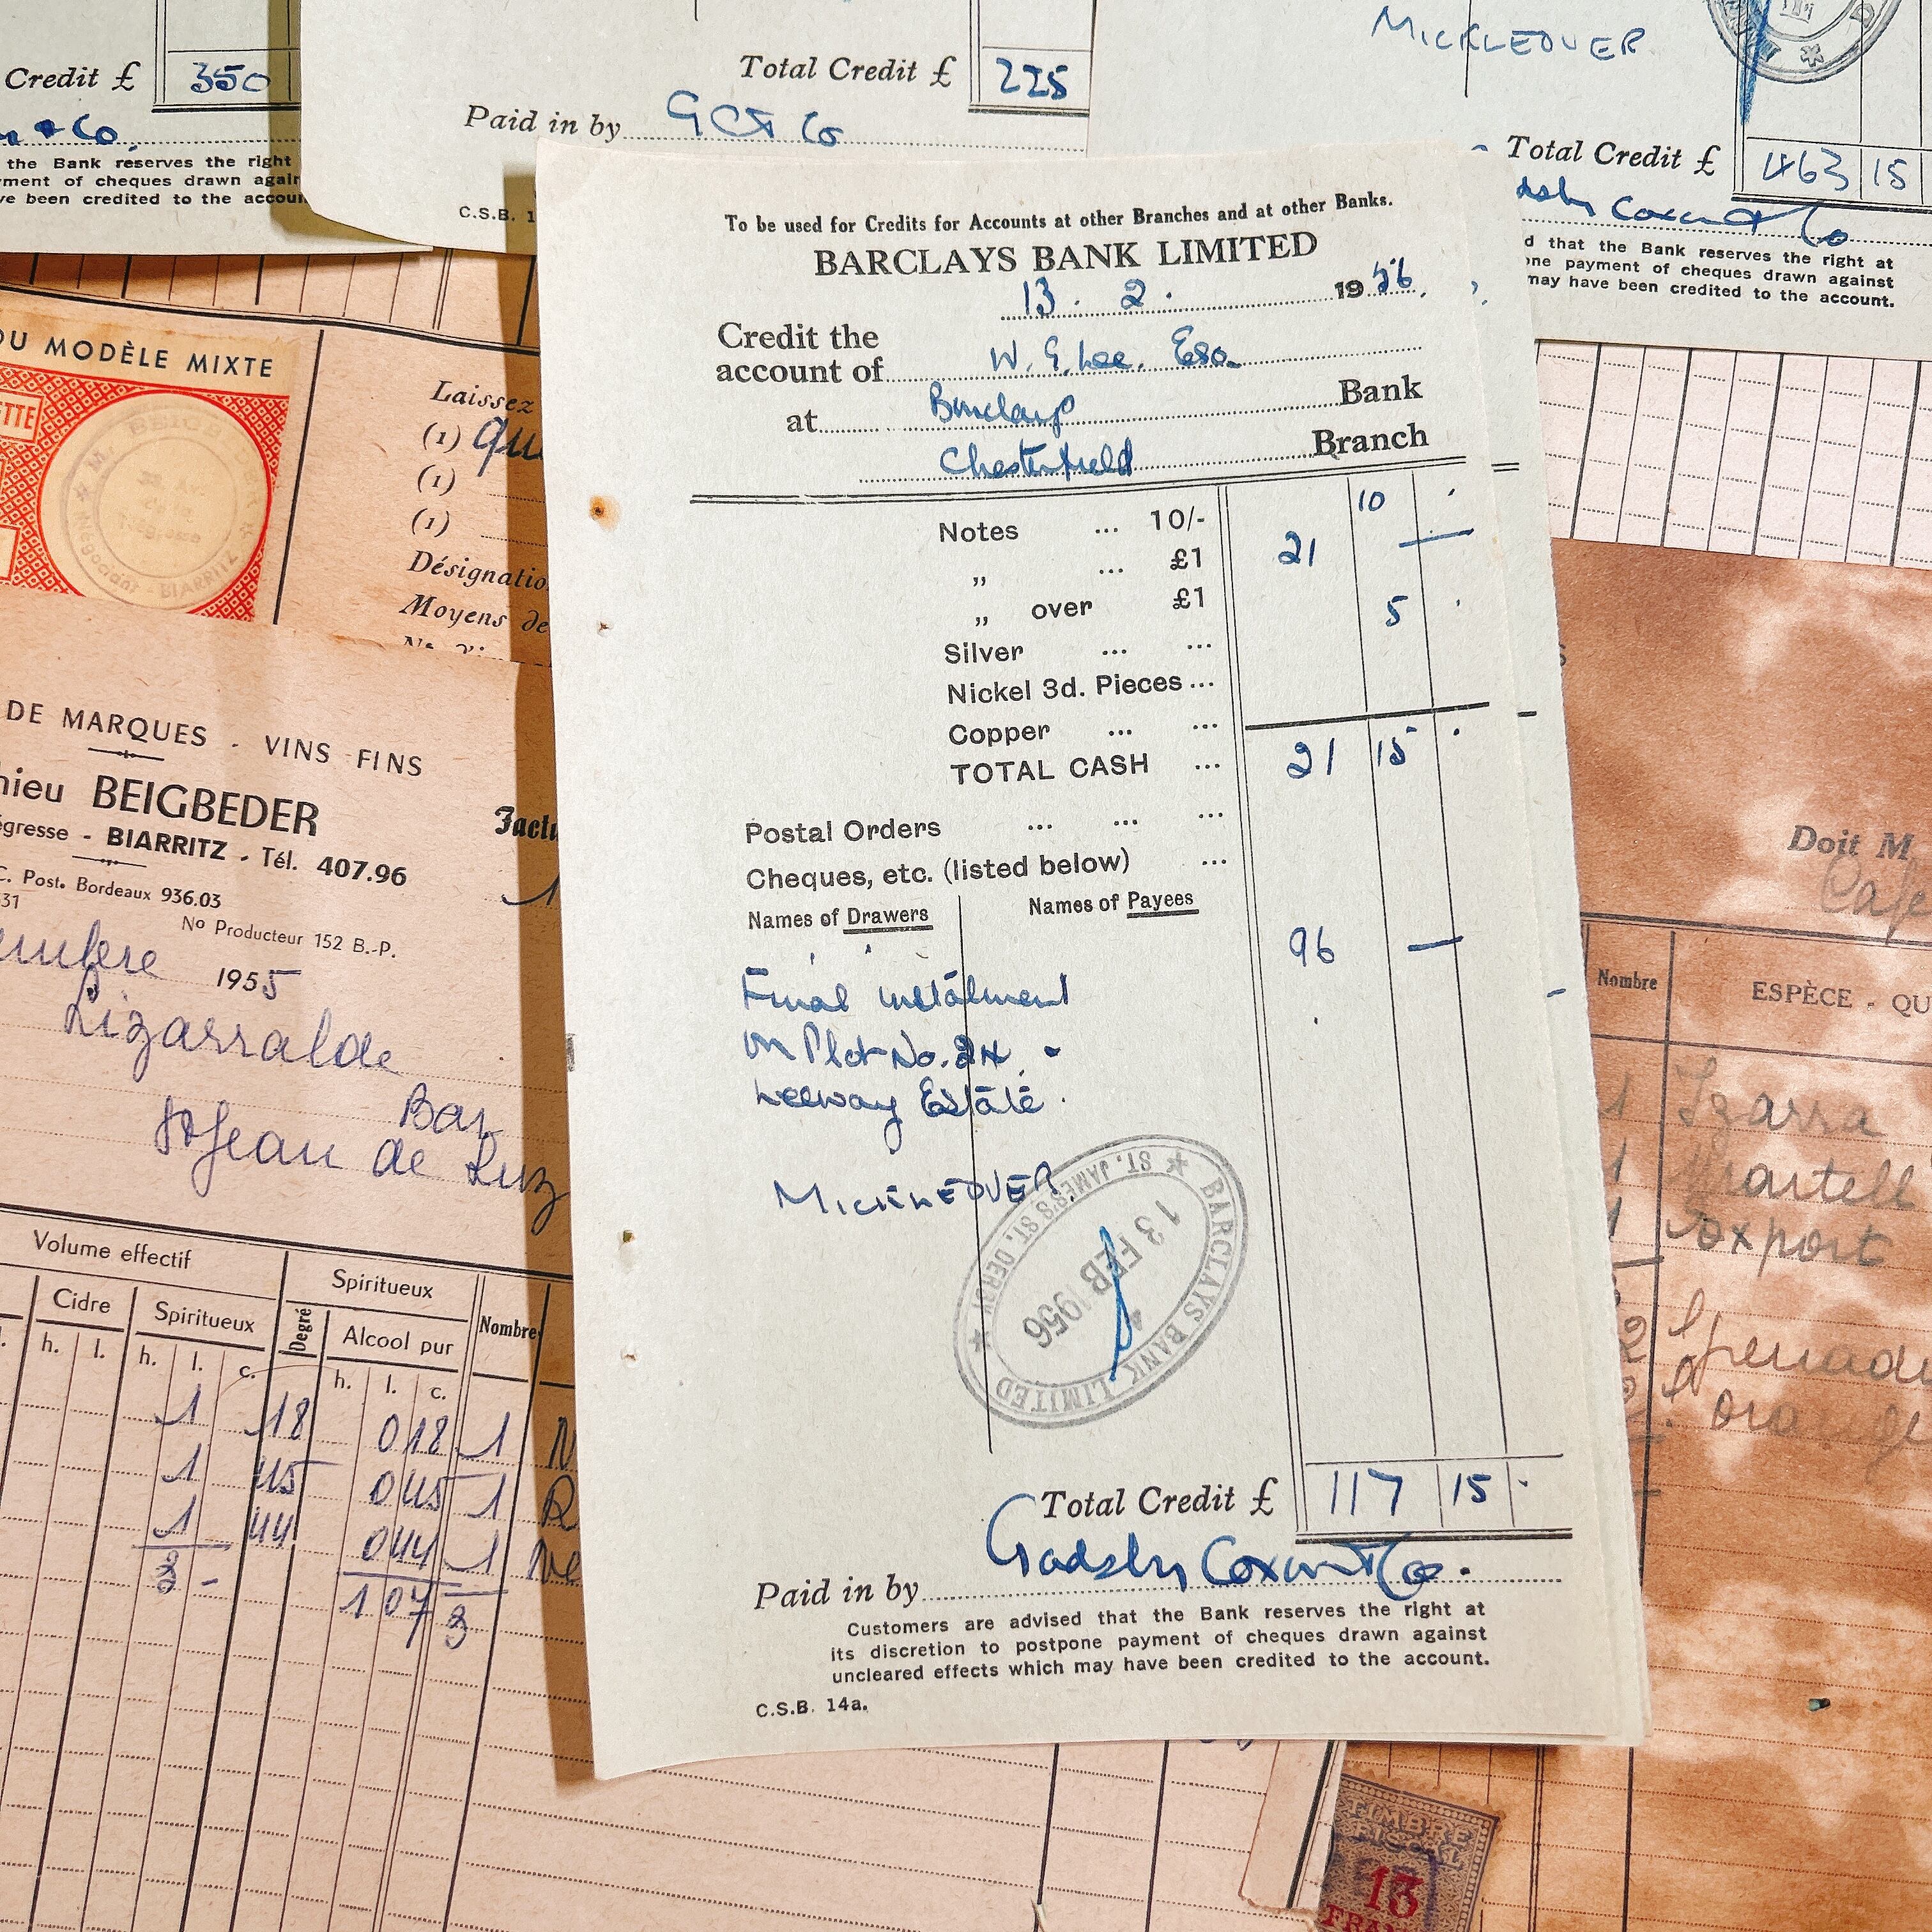 Credit £ 350
& Co.
the Bank reserves the right
ment of cheques drawn again
ve been credited to the accoun
Total Credit £ 225
Paid in by G C & Co
C.S.B. 1
MICKLEOVER
Total Credit £ 463 15
Coxon & Co
d that the Bank reserves the right at
one payment of cheques drawn against
may have been credited to the account.
To be used for Credits for Accounts at other Branches and at other Banks.
BARCLAYS BANK LIMITED
13. 2. 1956.
Credit the
account of W. G. Lee. Esq.
at Barclays Bank
Chesterfield Branch
Notes ... 10/- 10
„ ... £1 21 —
„ over £1
Silver ... ... 5
Nickel 3d. Pieces ...
Copper ... ...
TOTAL CASH ... 21 15
Postal Orders ... ... ...
Cheques, etc. (listed below) ...
Names of Drawers Names of Payees
96 —
Final instalment
on Plot No. 24.
Leeway Estate.
MICKLEOVER
BARCLAYS BANK LIMITED
ST. JAMES'S ST. DERBY
13 FEB 1956
4
Total Credit £ 117 15
Paid in by Gadsby Coxon & Co.
Customers are advised that the Bank reserves the right at
its discretion to postpone payment of cheques drawn against
uncleared effects which may have been credited to the account.
C.S.B. 14a.
DU MODÈLE MIXTE
ETTE
BEIGBEDER
Négresse
Négociant - BIARRITZ
Laissez
(1) qu
(1)
(1)
Désignatio
Moyens de
DE MARQUES - VINS FINS
hieu BEIGBEDER
égresse - BIARRITZ - Tél. 407.96
C. Post. Bordeaux 936.03
31
No Producteur 152 B.-P.
Factu
embre 1955
Lizarralde
Bar
St Jean de Luz
Volume effectif
Spiritueux
Cidre
Spiritueux
Degré
Alcool pur
Nombre
h. l. h. l. c. h. l. c.
1 18 0 18 1
1 45 0 45 1
1 44 0 44 1
3 - 1 07 3
Doit M
Cafe
Nombre
ESPÈCE - QU
1 Izarra
1 Martell
1 export
3
2 Grenadi
2 orange
TIMBRE
FISCAL
13
FRAN